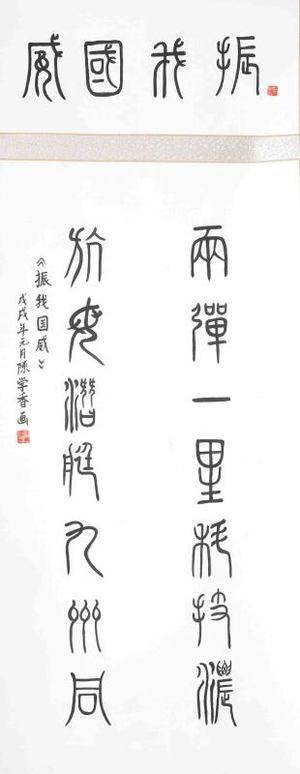 振我國威
兩彈一星科技濃
航母潛艇九州同
《振我国威》
戊戌年元月陈学香画